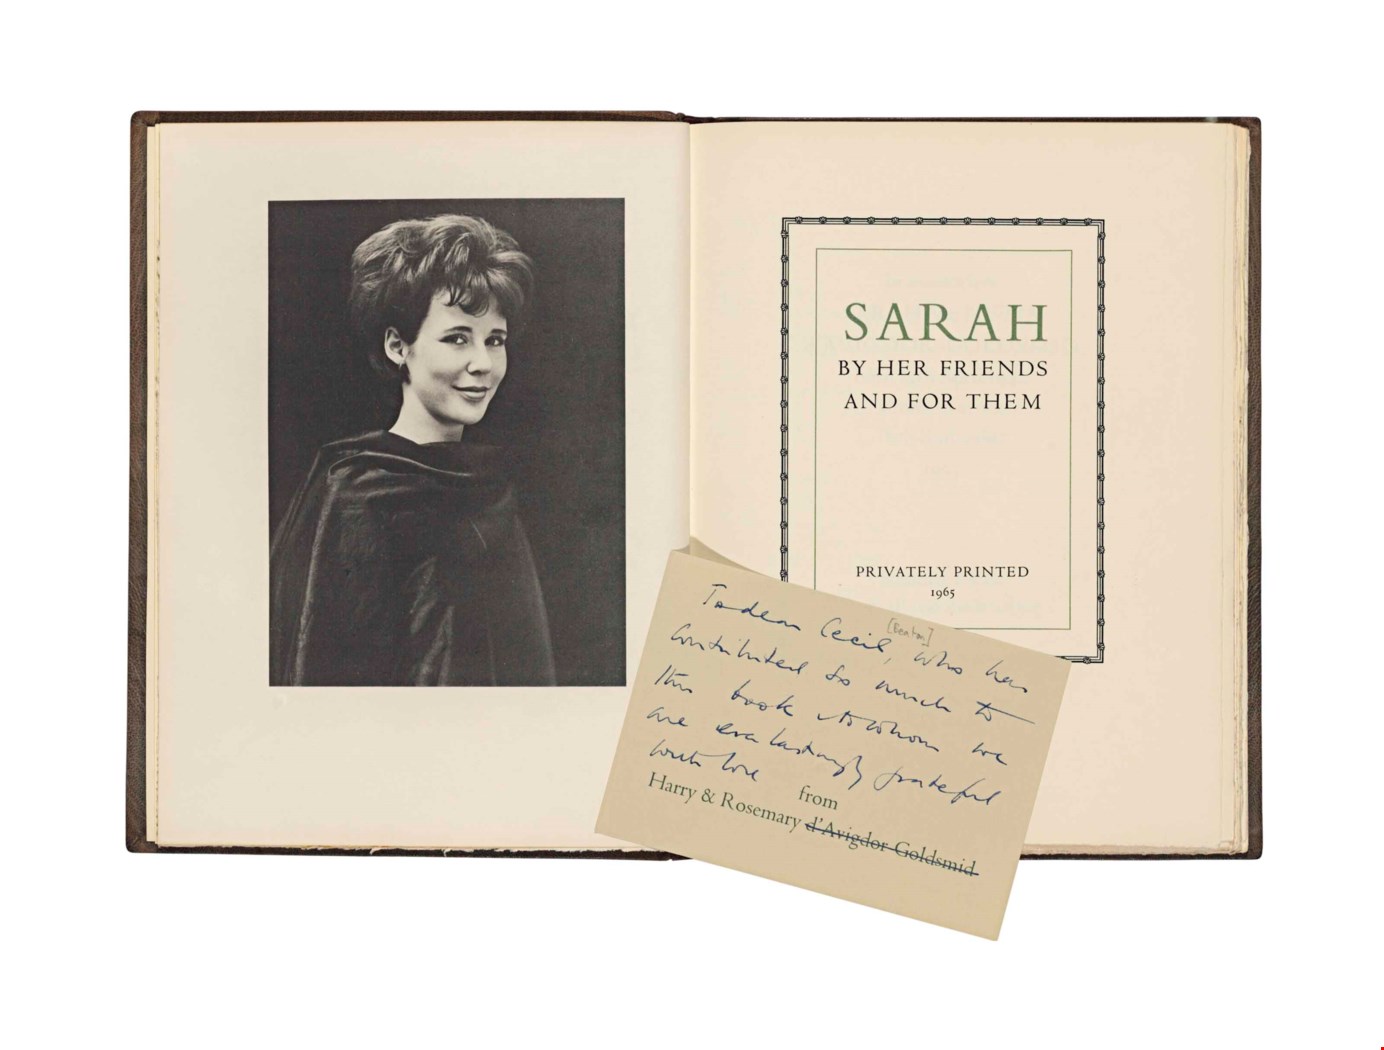 SARAH
BY HER FRIENDS
AND FOR THEM
PRIVATELY PRINTED
1965
[Beaton]
To dear Cecil, who has
contributed so much to
this book & to whom we
are everlastingly grateful
with love
from
Harry & Rosemary d'Avigdor Goldsmid